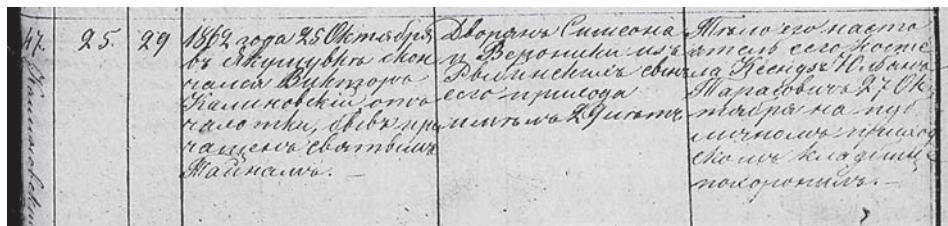 47.
Калиновский
25.
29
1862 года 25 Октября
въ Якушувкѣ скон
чался Викторъ
Калиновскій отъ
чахотки, бывъ прі
чащенъ святыхъ
Тайнамъ. —
Дворянъ Симеона
и Вероники изъ
сынъ
сего прихода
имѣлъ 29 лѣтъ
Тѣло его насто
ятель сего косте
ла Ксендзъ Юльянъ
Тарасовичъ 27 Ок
тября на пуб
личномъ приход
скомъ кладбищѣ
похоронилъ. —